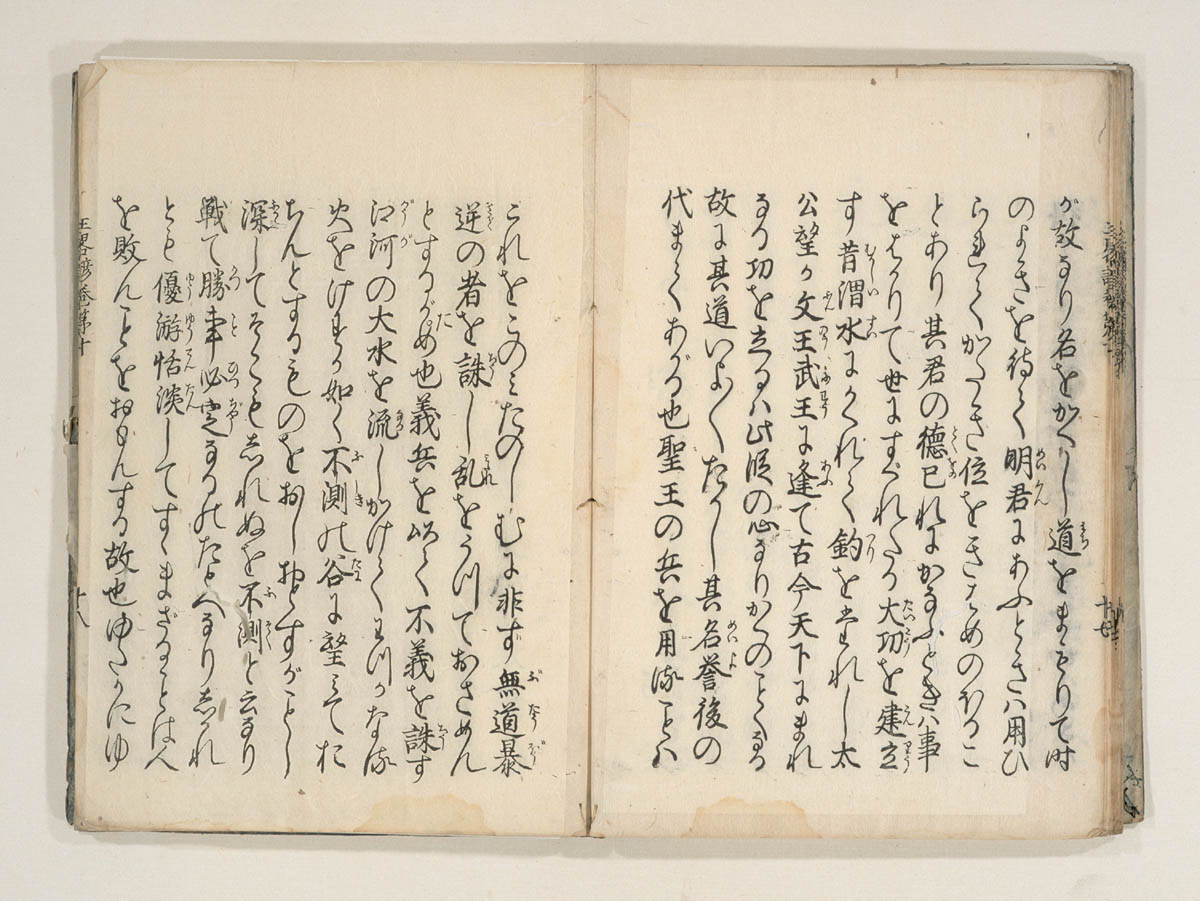 が故なり名をかくし道をまもりて時
のよきを待て明君にあふときハ用ひ
られてかたき位をきはめのほるこ
とあり其君の德己れにかなふときハ事
をはかりて世にすぐれたる大功を建立
す昔渭水にかくれて釣をたれし太
公望が文王武王に逢て古今天下にまれ
なる功を立るハ此段の心なりかのことくなる
故に其道いよ〱たかし其名誉後の
代まてあがる也聖王の兵を用ることハ
これをこのみたのしむに非ず無道暴
逆の者を誅し乱をうつておさめん
とするがため也義兵を以て不義を誅す
江河の大水を流しかけてわづかなる
火をけすか如く不測の谷に望みてお
ちんとするものをおしおとすがことし
深してそこもしれぬを不測と云なり
戰て勝事必定なるのたとへなりしかれ
とも優游恬淡してすゝまざることは人
を敗んことをおもんする故也ゆたかにゆ
十八